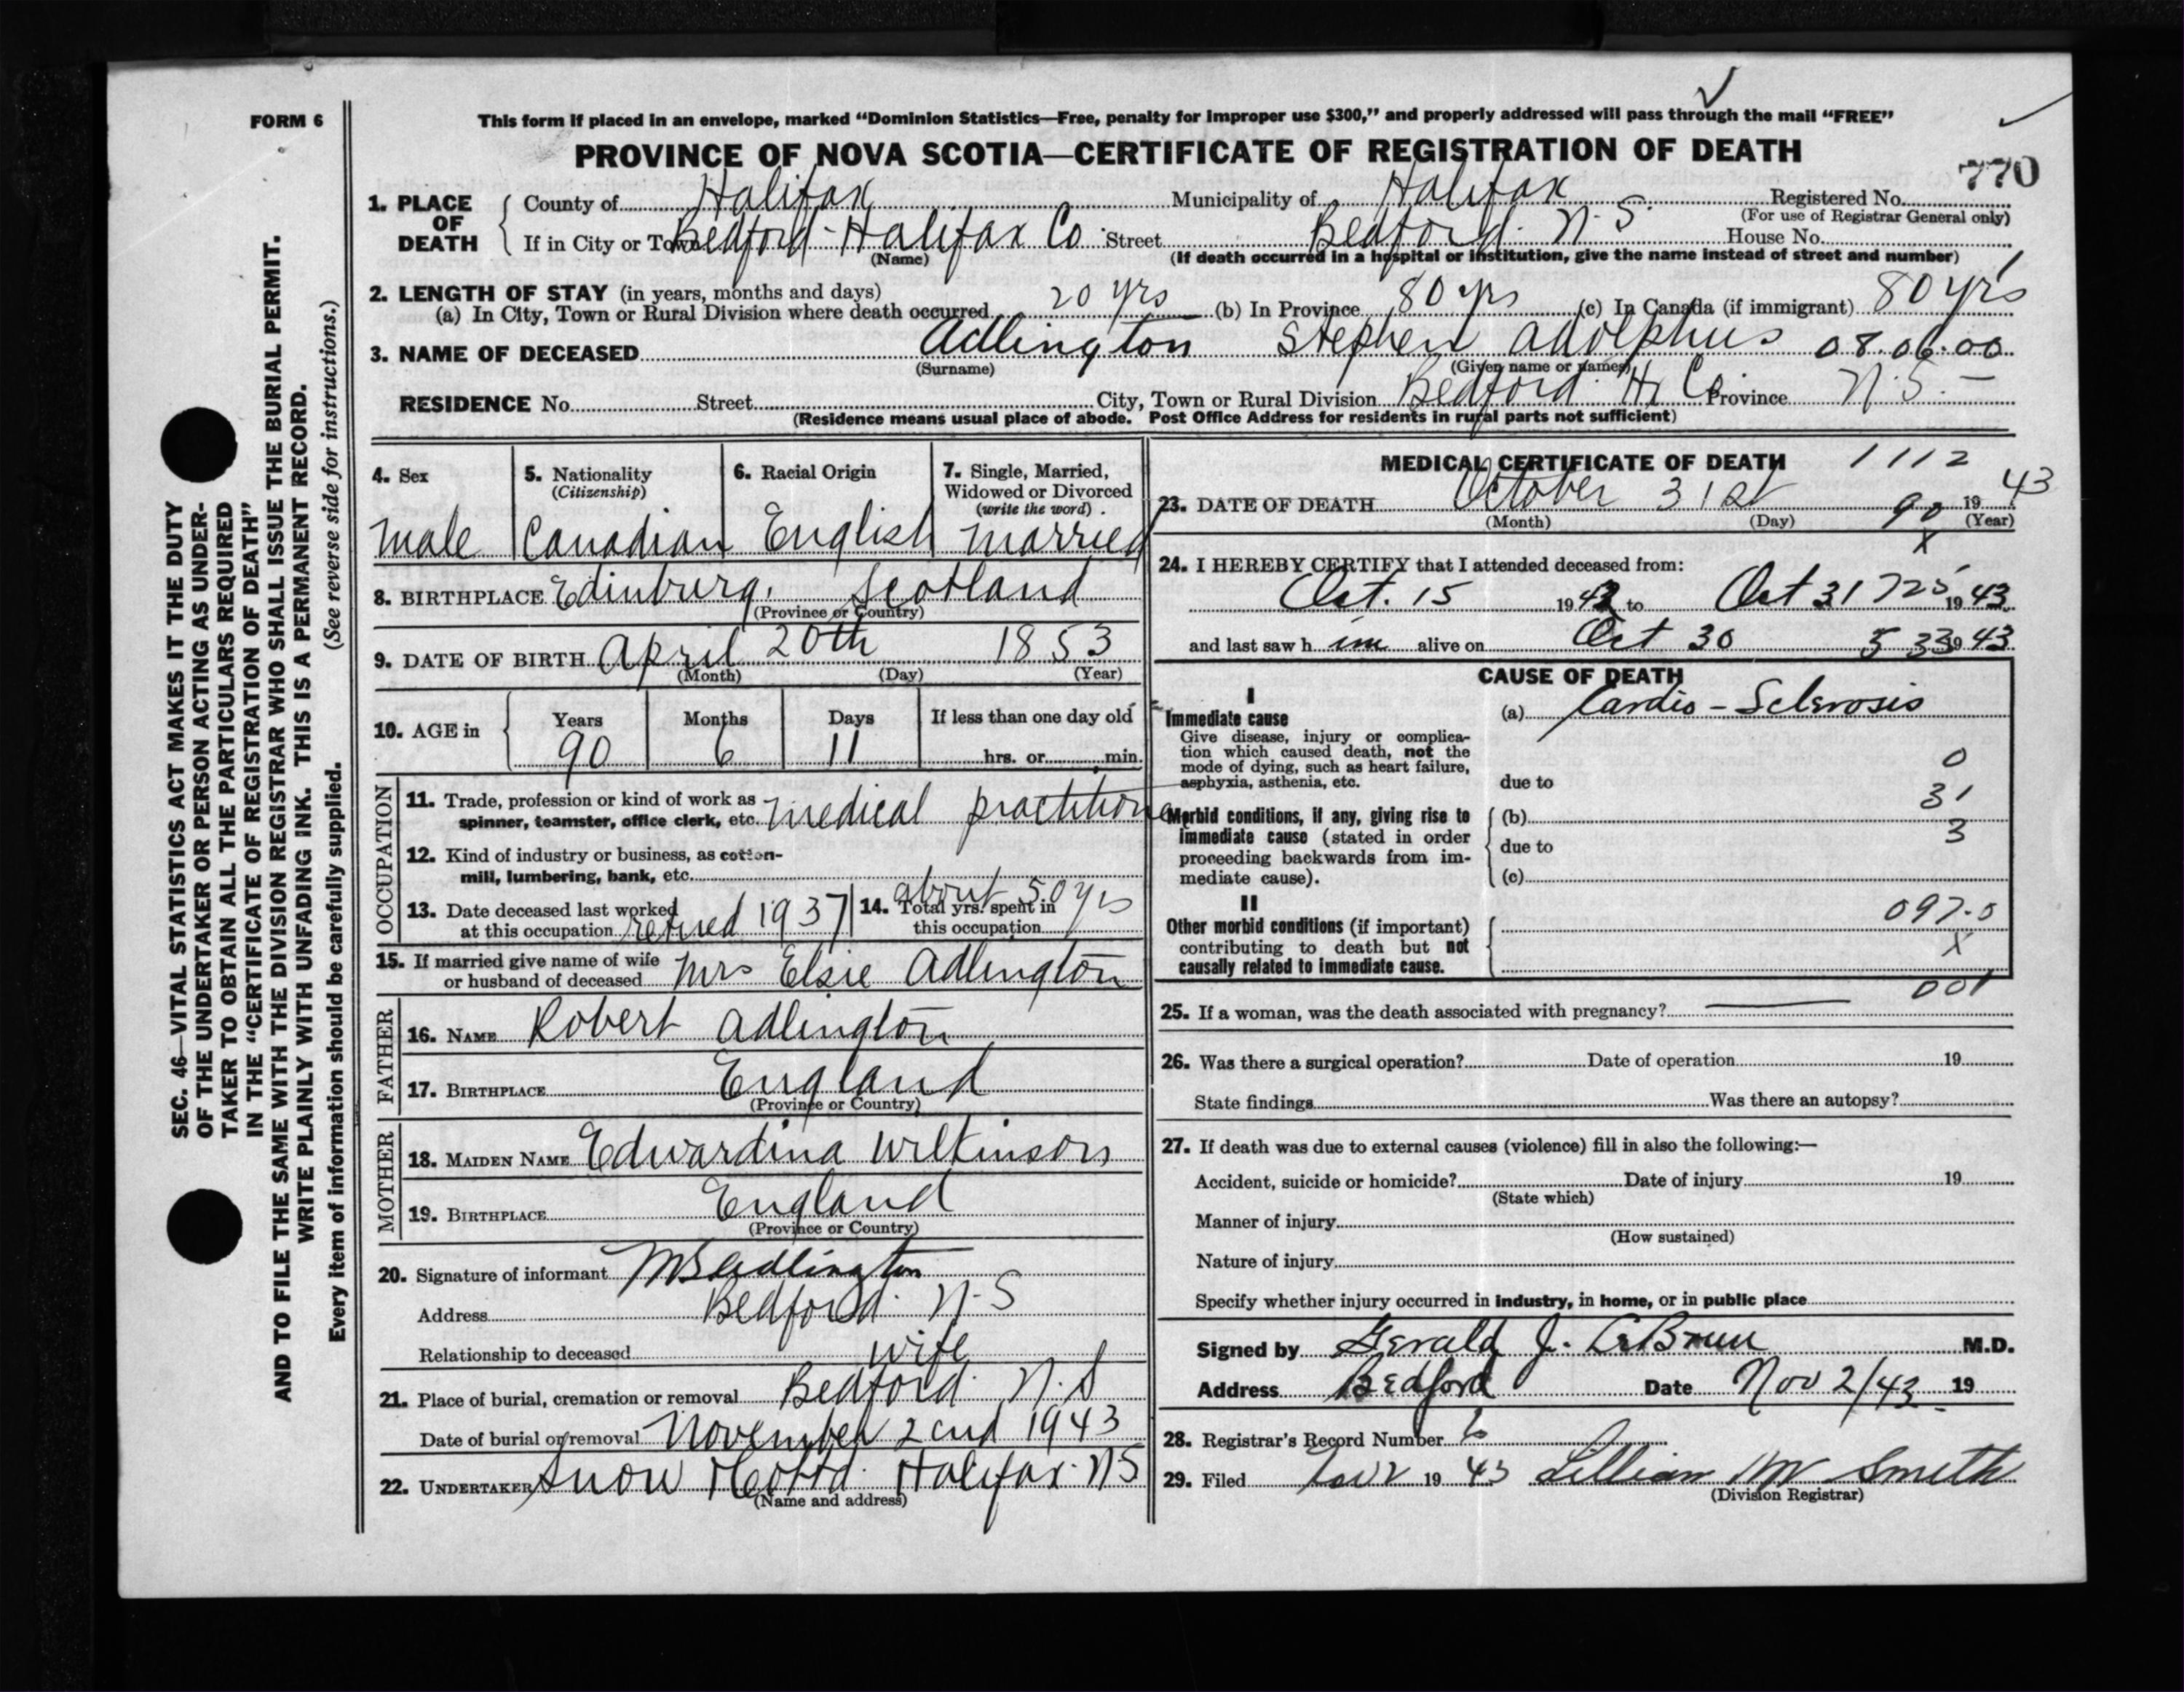 FORM 6
This form if placed in an envelope, marked “Dominion Statistics—Free, penalty for improper use $300,” and properly addressed will pass through the mail “FREE”
PROVINCE OF NOVA SCOTIA—CERTIFICATE OF REGISTRATION OF DEATH
770
1. PLACE OF DEATH County of Halifax Municipality of Halifax Registered No.
(For use of Registrar General only)
If in City or Town Bedford - Halifax Co Street Bedford. N. S. House No.
(Name) (If death occurred in a hospital or institution, give the name instead of street and number)
2. LENGTH OF STAY (in years, months and days)
(a) In City, Town or Rural Division where death occurred 20 yrs (b) In Province 80 yrs (c) In Canada (if immigrant) 80 yrs
3. NAME OF DECEASED Adlington Stephen Adolphus 08.06.00
(Surname) (Given name or names)
RESIDENCE No. Street City, Town or Rural Division Bedford. Hx Co Province N. S. —
(Residence means usual place of abode. Post Office Address for residents in rural parts not sufficient)
4. Sex
male
5. Nationality
(Citizenship)
Canadian
6. Racial Origin
English
7. Single, Married,
Widowed or Divorced
(write the word)
married
8. BIRTHPLACE Edinburg, Scotland
(Province or Country)
9. DATE OF BIRTH April 20th 1853
(Month) (Day) (Year)
10. AGE in Years Months Days If less than one day old
90 6 11 hrs. or min.
OCCUPATION
11. Trade, profession or kind of work as
spinner, teamster, office clerk, etc. medical practitioner
12. Kind of industry or business, as cotton-
mill, lumbering, bank, etc.
13. Date deceased last worked
at this occupation retired 1937
14. Total yrs. spent in
this occupation about 50 yrs
15. If married give name of wife
or husband of deceased Mrs Elsie Adlington
FATHER
16. NAME Robert Adlington
17. BIRTHPLACE England
(Province or Country)
MOTHER
18. MAIDEN NAME Edwardina Wilkinson
19. BIRTHPLACE England
(Province or Country)
20. Signature of informant Adlington
Address Bedford. N. S
Relationship to deceased wife
21. Place of burial, cremation or removal Bedford. N. S
Date of burial or removal November 2cnd 1943
22. UNDERTAKER Snow Halifax. NS
(Name and address)
MEDICAL CERTIFICATE OF DEATH 1112
23. DATE OF DEATH October 31st 90 19 43
(Month) (Day) (Year)
X
24. I HEREBY CERTIFY that I attended deceased from:
Oct. 15 1943 to Oct 31 725 1943
and last saw h im alive on Oct 30 5 33 19 43
CAUSE OF DEATH
I
Immediate cause
Give disease, injury or complica-
tion which caused death, not the
mode of dying, such as heart failure,
asphyxia, asthenia, etc.
(a) Cardio - Sclerosis
0
due to
31
Morbid conditions, if any, giving rise to
immediate cause (stated in order
proceeding backwards from im-
mediate cause).
(b)
3
due to
(c)
II
Other morbid conditions (if important)
contributing to death but not
causally related to immediate cause.
097.0
X
001
25. If a woman, was the death associated with pregnancy?
26. Was there a surgical operation? Date of operation 19
State findings Was there an autopsy?
27. If death was due to external causes (violence) fill in also the following:—
Accident, suicide or homicide? Date of injury 19
(State which)
Manner of injury
(How sustained)
Nature of injury
Specify whether injury occurred in industry, in home, or in public place
Signed by Gerald J. LeBrun M.D.
Address Bedford Date Nov 2/43 19
28. Registrar's Record Number 6
29. Filed Nov 2 19 43 Lillian M Smith
(Division Registrar)
SEC. 46—VITAL STATISTICS ACT MAKES IT THE DUTY
OF THE UNDERTAKER OR PERSON ACTING AS UNDER-
TAKER TO OBTAIN ALL THE PARTICULARS REQUIRED
IN THE “CERTIFICATE OF REGISTRATION OF DEATH”
AND TO FILE THE SAME WITH THE DIVISION REGISTRAR WHO SHALL ISSUE THE BURIAL PERMIT.
WRITE PLAINLY WITH UNFADING INK. THIS IS A PERMANENT RECORD.
Every item of information should be carefully supplied. (See reverse side for instructions.)